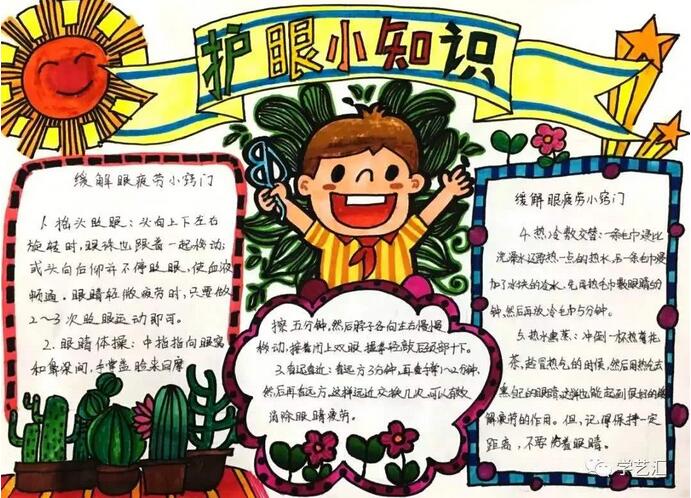 护眼小知识
缓解眼疲劳小窍门
1. 抬头眨眼：头向上下左右
旋转时，眼珠也跟着一起移动；
或头向后仰并不停眨眼，使血液
畅通。眼睛轻微疲劳时，只要做
2～3次眨眼运动即可。
2. 眼睛体操：中指指向眼窝
和鼻梁间，手掌盖脸来回摩
擦五分钟，然后脖子各向左右慢慢
移动，接着闭上双眼，握拳轻敲后颈部十下。
3. 看远看近：看远方3分钟，再看手掌1～2分钟，
然后再看远方，这样远近交换几次，可以有效
消除眼睛疲劳。
缓解眼疲劳小窍门
4. 热冷敷交替：一条毛巾浸比
洗澡水还要热一点的热水，另一条毛巾浸
加了冰块的冷水，先用热毛巾敷眼睛5分
钟，然后再敷冷毛巾5分钟。
5. 热水熏蒸：冲倒一杯热菊花
茶，趁冒热气的时候，然后用热气去
熏自己的眼睛，这样也能起到很好的缓
解疲劳的作用。但，记得保持一定
距离，不要伤着眼睛。
学艺汇